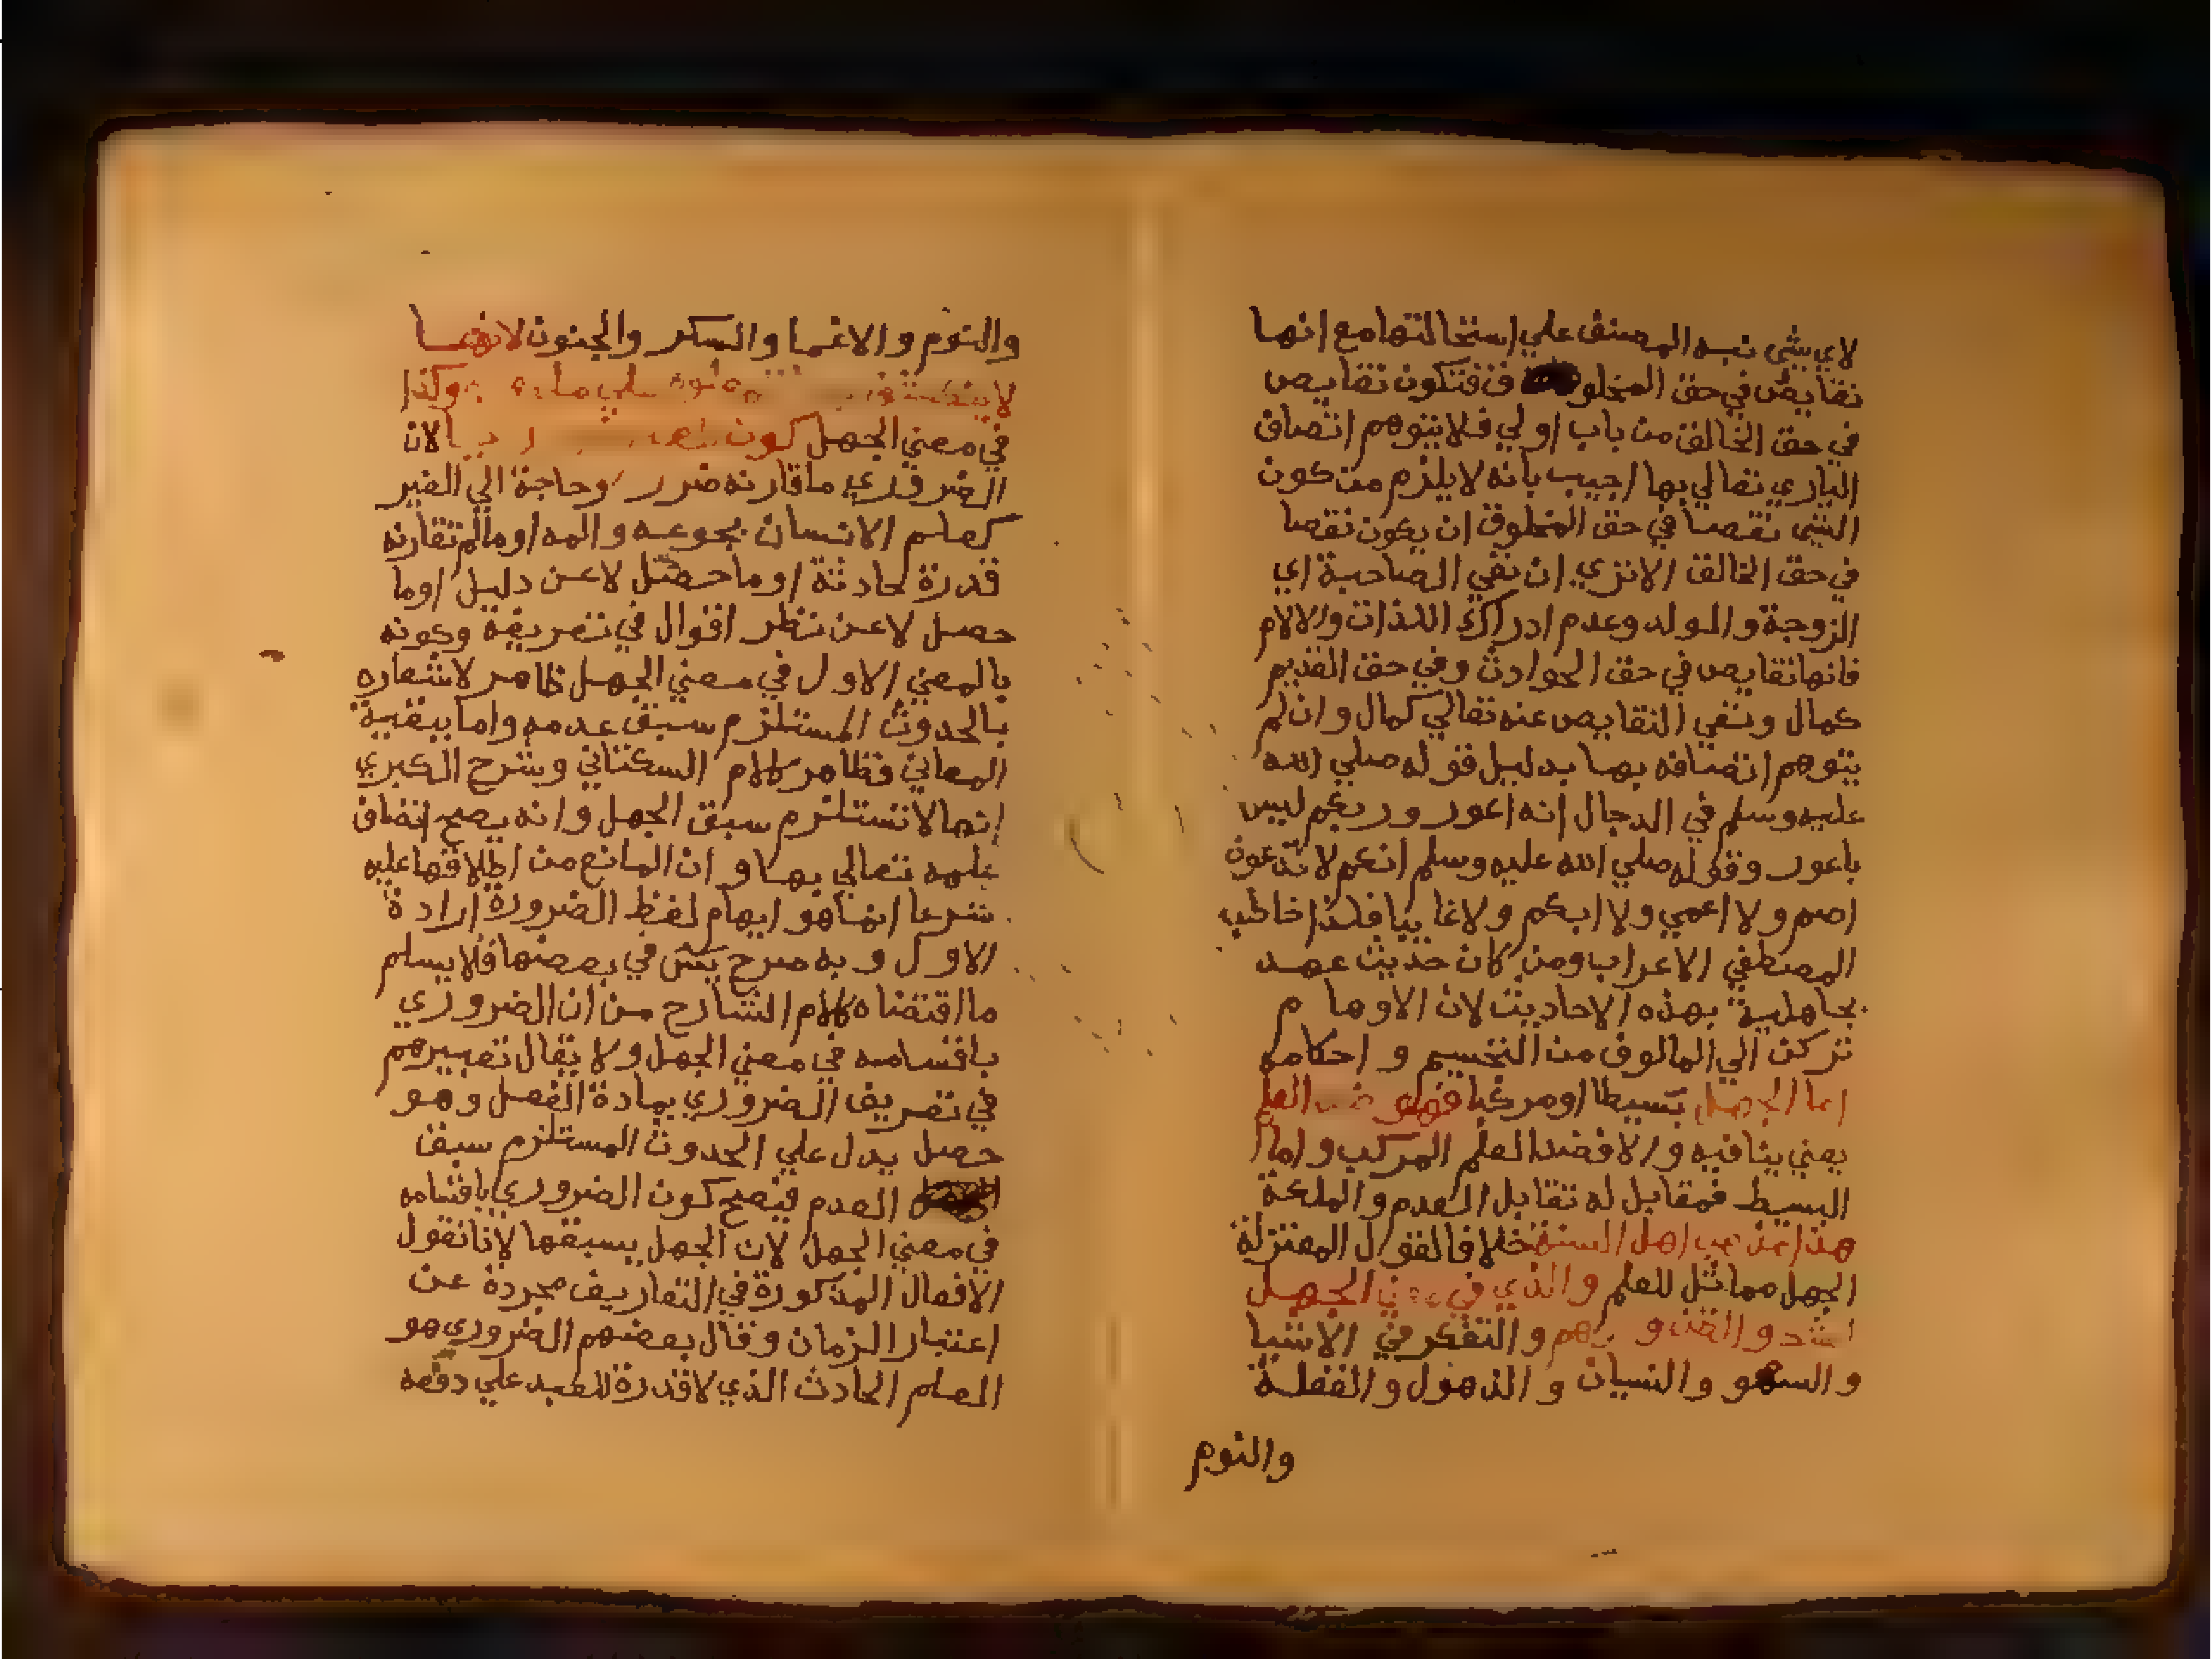 لاي شي نبه المصنف علي استحالتها مع انها
نقايص في حق المخلوق فتكون نقايص
في حق الخالق من باب اولي فلا يتوهم اتصاف
الباري تعالي بها اجيب بانه لا يلزم من كون
الشي نقصا في حق المخلوق ان يكون نقصا
في حق الخالق الا تري ان نفي الصاحبة اي
الزوجة والولد وعدم ادراك اللذات والالام
فانها نقايص في حق الحوادث وفي حق القديم
كمال ونفي النقايص عنه تعالي كمال وان لم
يتوهم اتصافه بها بدليل قوله صلي الله
عليه وسلم في الدجال انه اعور وربكم ليس
باعور وقوله صلي الله عليه وسلم انكم لا تدعون
اصم ولا اعمي ولا ابكم ولا غايبا فلذا خاطب
المصطفي الاعراب ومن كان حديث عهد
بجاهلية بهذه الاحاديث لان الاوها م
تركن الي المالوف من التجسيم و احكامه
اما الجهل بسيطا او مركبا فهو ضد العلم
يعني ينافيه والا فضد العلم المركب واما
البسيط فمقابل له تقابل العدم والملكة
هذا مذهب اهل السنة خلافا لقول المعتزلة
الجهل مماثل للعلم والذي في معني الجهل
الشك والظن والوهم والتفكر في الاشيا
و السهو والنسيان و الذهول والغفلة
والنوم
والنوم والاغما والسكر والجنون لانها
لا وكذا
في معني الجهل كون لان
الضروري ما قارنه ضرر وحاجة الي الغير
كعلم الانسان بجوعه والمه او ما لم تقارنه
قدرة لحادثة او ما حصل لا عن دليل او ما
حصل لا عن نظر اقوال في تعريفه وكونه
بالمعني الاول في معني الجهل ظاهر لاشعاره
بالحدوث المستلزم سبق عدمه واما ببقية
المعاني فظاهر كلام السكتاني وشرح الكبري
انها لا تستلزم سبق الجهل وانه يصح اتصاف
علمه تعالي بها و ان المانع من اطلاقها عليه
شرعا انما هو ايهام لفظ الضرورة ارادة
الاول و به صرح يس في بعضها فلا يسلم
ما اقتضاه كلام الشارح من ان الضروري
باقسامه في معني الجهل ولا يقال تعبيرهم
في تعريف الضروري بمادة الفعل وهو
حصل يدل علي الحدوث المستلزم سبق
العدم فيصح كون الضروري باقسامه
في معني الجهل لان الجهل يسبقها لانا نقول
الافعال المذكورة في التعاريف مجردة عن
اعتبار الزمان وقال بعضهم الضروري هو
العلم الحادث الذي لا قدرة للعبد علي دفعه